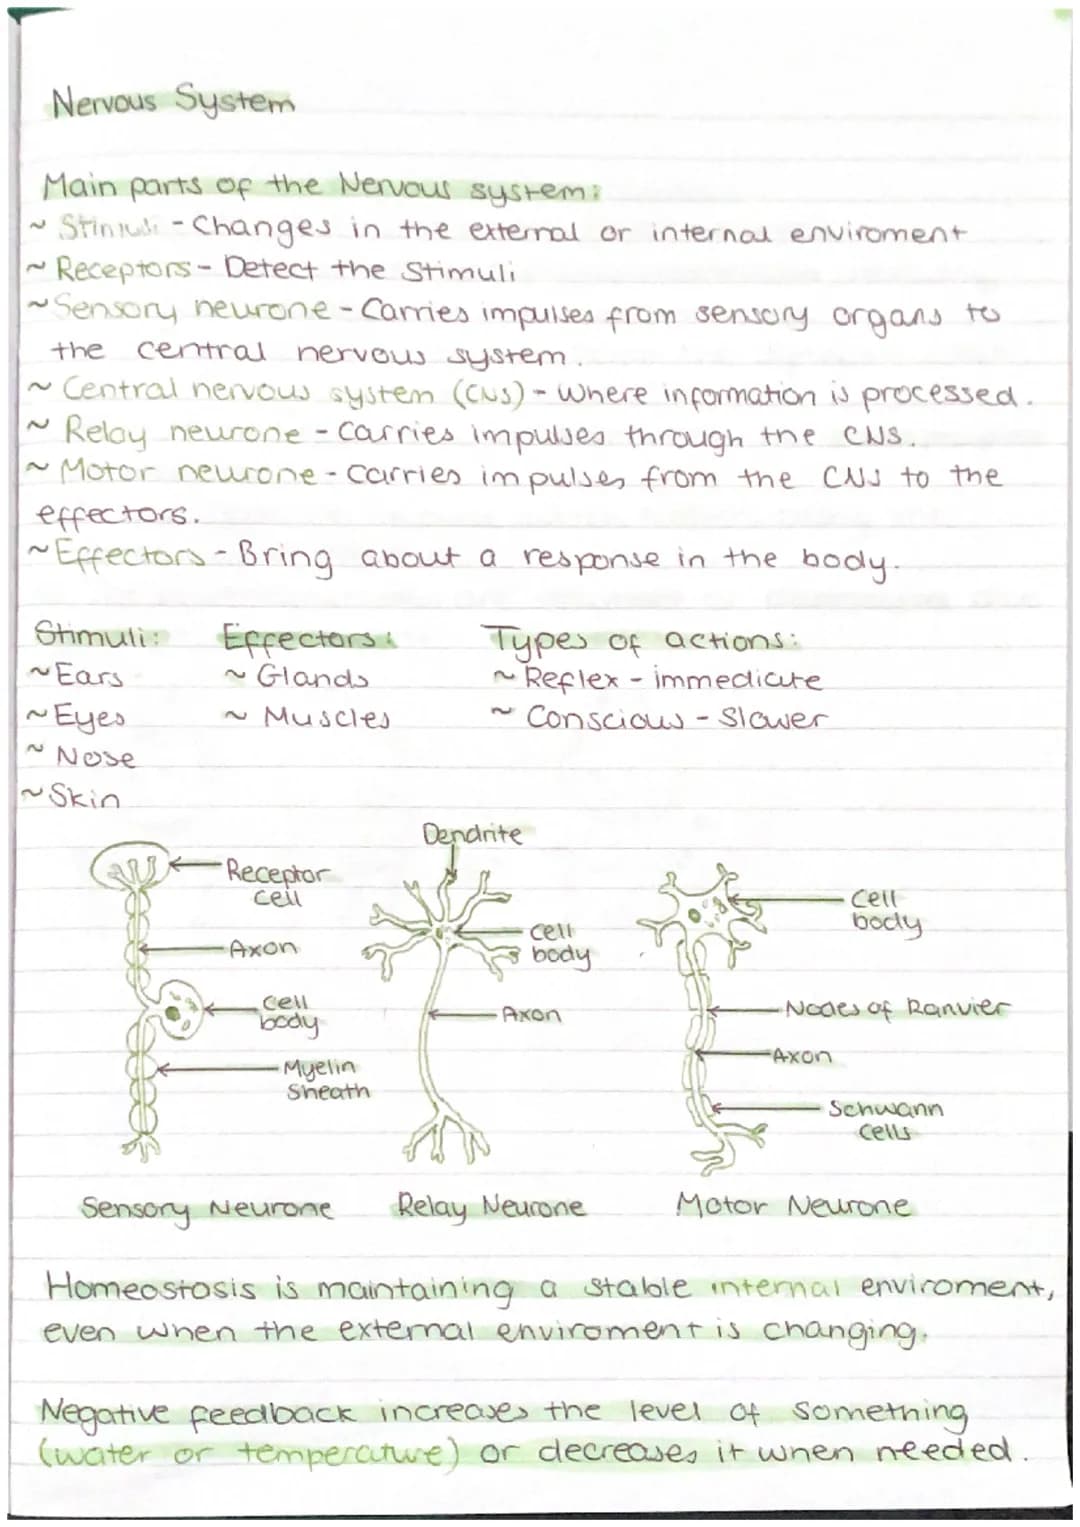 Nervous System
Main parts of the Nervous system:
~ Stimuli - Changes in the external or internal enviroment
~ Receptors - Detect the Stimuli
~ Sensory neurone - Carries impulses from sensory organs to
the central nervous system.
~ Central nervous system (CNS) - Where information is processed.
~ Relay neurone - Carries impulses through the CNS.
~ Motor neurone - Carries impulses from the CNS to the
effectors.
~ Effectors - Bring about a response in the body.
Stimuli: Effectors: Types of actions:
~ Ears ~ Glands ~ Reflex - immediate
~ Eyes ~ Muscles ~ Conscious - Slower
~ Nose
~ Skin
Dendrite
Receptor
cell
Axon
Cell
body
Myelin
Sheath
Cell
body
Axon
Cell
body
Nodes of Ranvier
Axon
Schwann
Cells
Sensory Neurone Relay Neurone Motor Neurone
Homeostosis is maintaining a stable internal enviroment,
even when the external enviroment is changing.
Negative feedback increases the level of something
(water or temperature) or decreases it when needed.